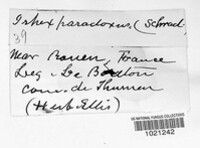 Irpex paradoxus, (Schrad.
39
Near Rouen, France
Leg. Le Breton
com. de Thumen
(Herb Ellis)
US NATIONAL FUNGUS COLLECTIONS
1021242